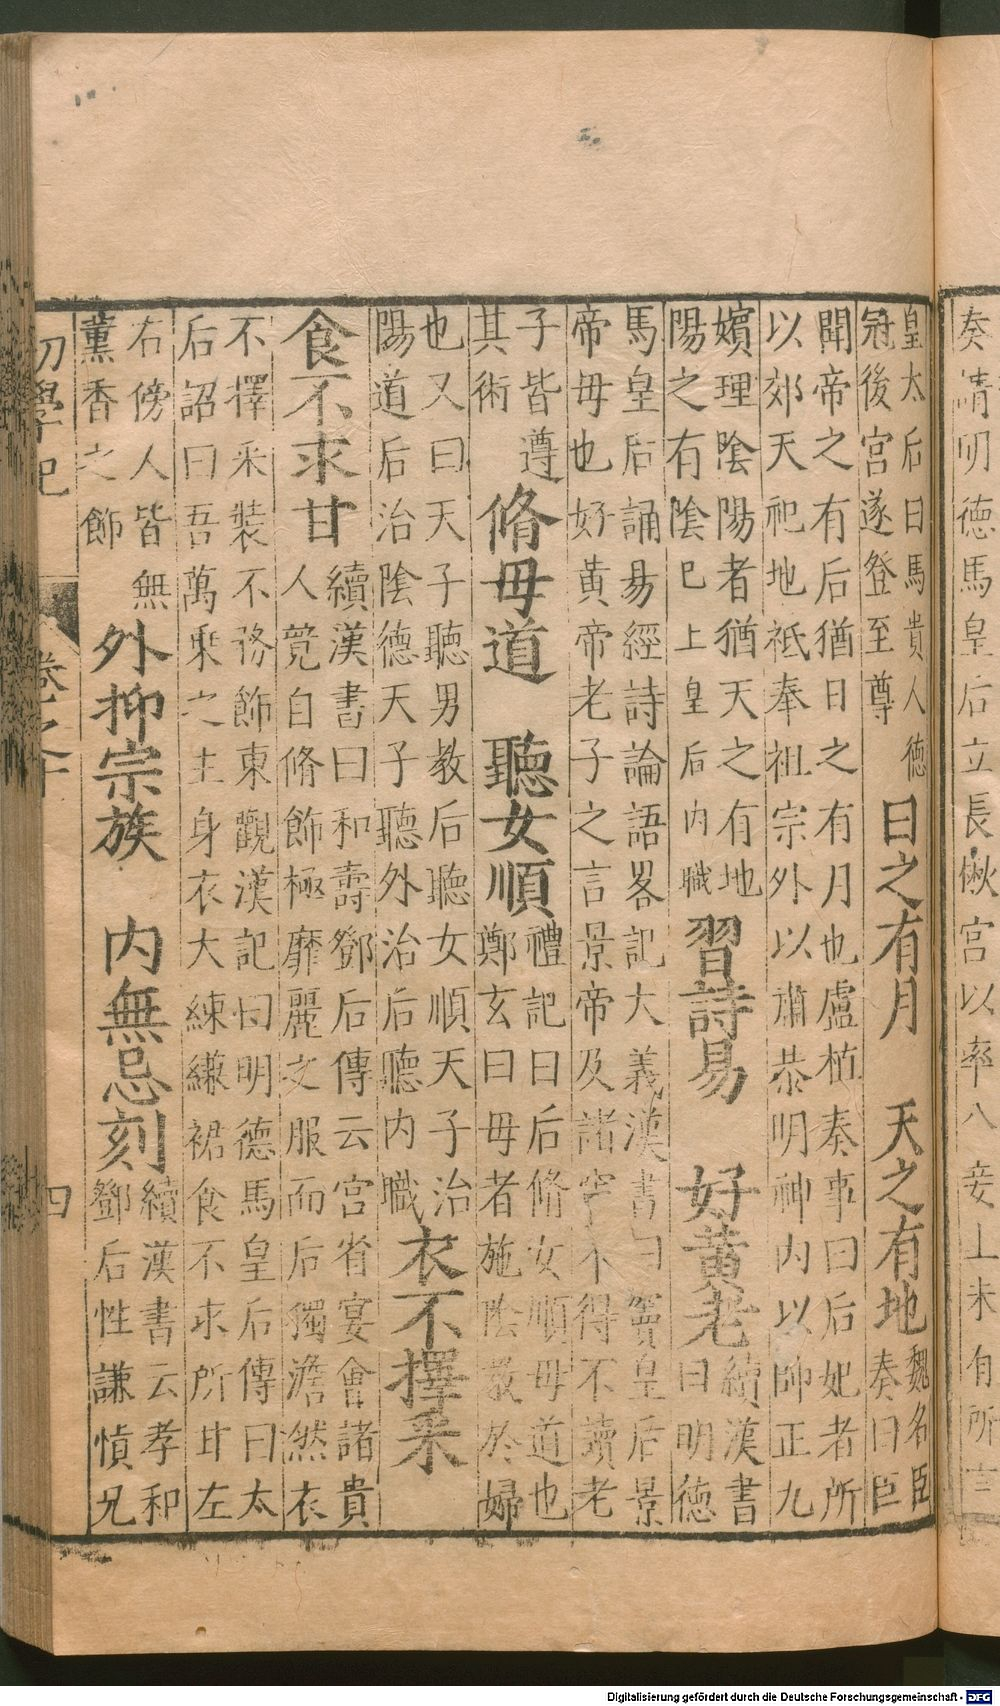 奏請明德馬皇后立長楸宮以率八妾上未有所言
皇太后曰馬貴人德
冠後宮遂登至尊
日之有月　天之有地
魏名臣
奏曰臣
聞帝之有后猶日之有月也盧植奏事曰后妃者所
以郊天祀地祗奉祖宗外以肅恭明神内以帥正九
嬪理陰陽者猶天之有地
陽之有陰巳上皇后内職
習詩易　好黄老
續漢書
曰明德
馬皇后誦易經詩論語畧記大義漢書曰竇皇后景
帝母也好黄帝老子之言景帝及諸竇不得不讀老
子皆遵
其術
脩母道　聽女順
禮記曰后脩女順母道也
鄭玄曰母者施陰教於婦
也又曰天子聽男教后聽女順天子治
陽道后治陰德天子聽外治后聽内職
衣不擇采
食不求甘
續漢書曰和壽鄧后傳云宮省宴會諸貴
人競自脩飾極靡麗之服而后獨澹然衣
不擇采裝不務飾東觀漢記曰明德馬皇后傳曰太
后詔曰吾萬乘之主身衣大練縑裙食不求所甘左
右傍人皆無
薰香之飾
外抑宗族　内無忌刻
續漢書云孝和
鄧后性謙慎兄
初學記
卷之十
四
Digitalisierung gefördert durch die Deutsche Forschungsgemeinschaft - DFG